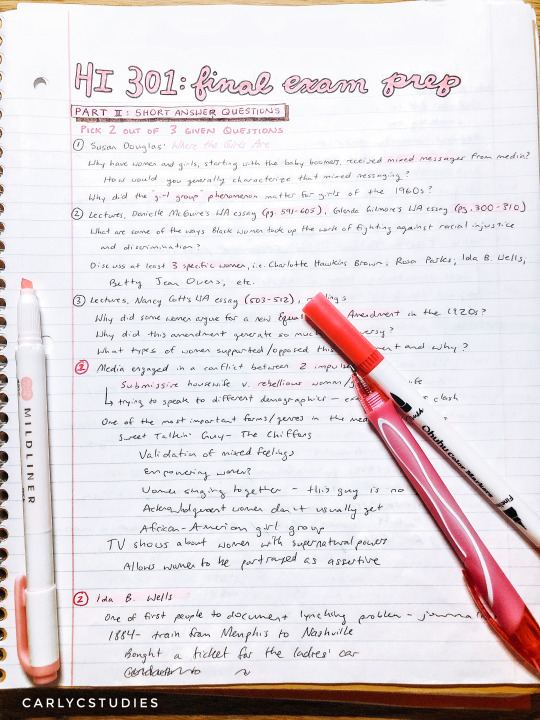 HI 301: final exam prep
PART II: SHORT ANSWER QUESTIONS
PICK 2 OUT OF 3 GIVEN QUESTIONS
① Susan Douglas: Where the Girls Are
Why have women and girls, starting with the baby boomers, received mixed messages from media?
How would you generally characterize that mixed messaging?
Why did the "girl group" phenomenon matter for girls of the 1960s?
② Lectures, Danielle McGuire's WA essay (pg. 591-605), Glenda Gilmore's WA essay (pg. 300-310)
What are some of the ways Black women took up the work of fighting against racial injustice
and discrimination?
Discuss at least 3 specific women, i.e. Charlotte Hawkins Brown, Rosa Parks, Ida B. Wells,
Betty Jean Owens, etc.
③ Lectures, Nancy Cott's WA essay (503-512),
Why did some women argue for a new Equal Amendment in the 1920s?
Why did this amendment generate so much
What types of women supported/opposed this and why?
① Media engaged in a conflict between 2
Submissive housewife v. rebellious
trying to speak to different demographics - clash
One of the most important forms/genres in the
Sweet Talkin' Guy - The Chiffons
Validation of mixed feelings
Empowering women?
Women singing together - this guy is no
Acknowledgment women don't usually get
African-American girl group
TV shows about women with supernatural powers
Allows women to be portrayed as assertive
② Ida B. Wells
One of first people to document lynching problem -
1884- train from Memphis to Nashville
Bought a ticket for the ladies' car
MILDLINER
Ohuhu
CARLYCSTUDIES